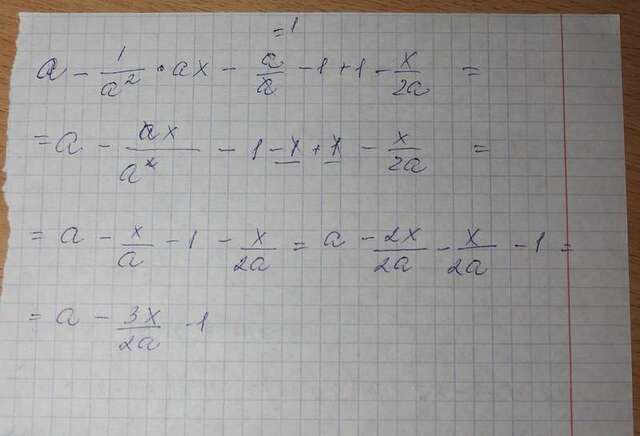 =1
a - 1/a² · ax - a/a - 1 + 1 - x/2a =
= a - ax/a² - 1 - 1 + 1 - x/2a =
= a - x/a - 1 - x/2a = a - 2x/2a - x/2a - 1 =
= a - 3x/2a - 1